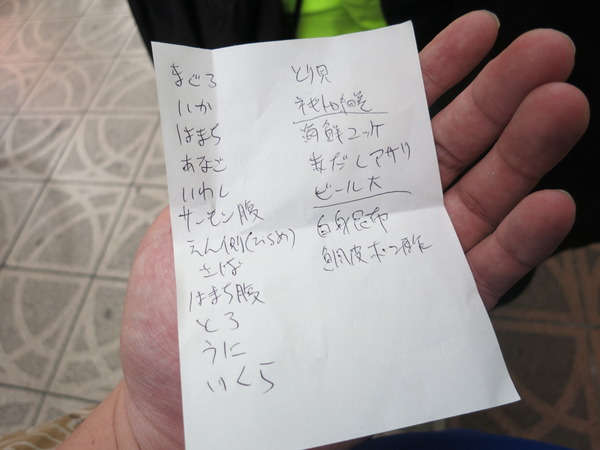 まぐろ
いか
はまち
あなご
いわし
サーモン腹
えん側(ひらめ)
さば
はまち腹
とろ
うに
いくら
とり貝
ネギトロ細巻
海鮮ユッケ
赤だしアサリ
ビール大
白身昆布
鯛皮ポン酢